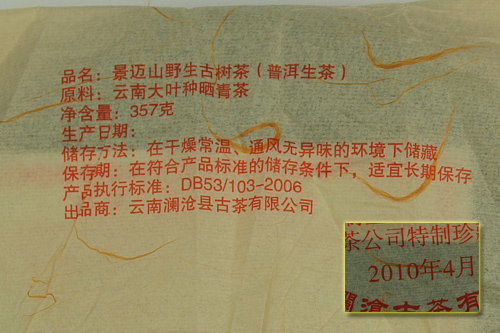 品名：景迈山野生古树茶（普洱生茶）
原料：云南大叶种晒青茶
净含量：357克
生产日期：
储存方法：在干燥常温、通风无异味的环境下储藏
保存期：在符合产品标准的储存条件下，适宜长期保存
产品执行标准：DB53/103-2006
出品商：云南澜沧县古茶有限公司
茶公司特制珍
2010年4月
澜沧古茶有